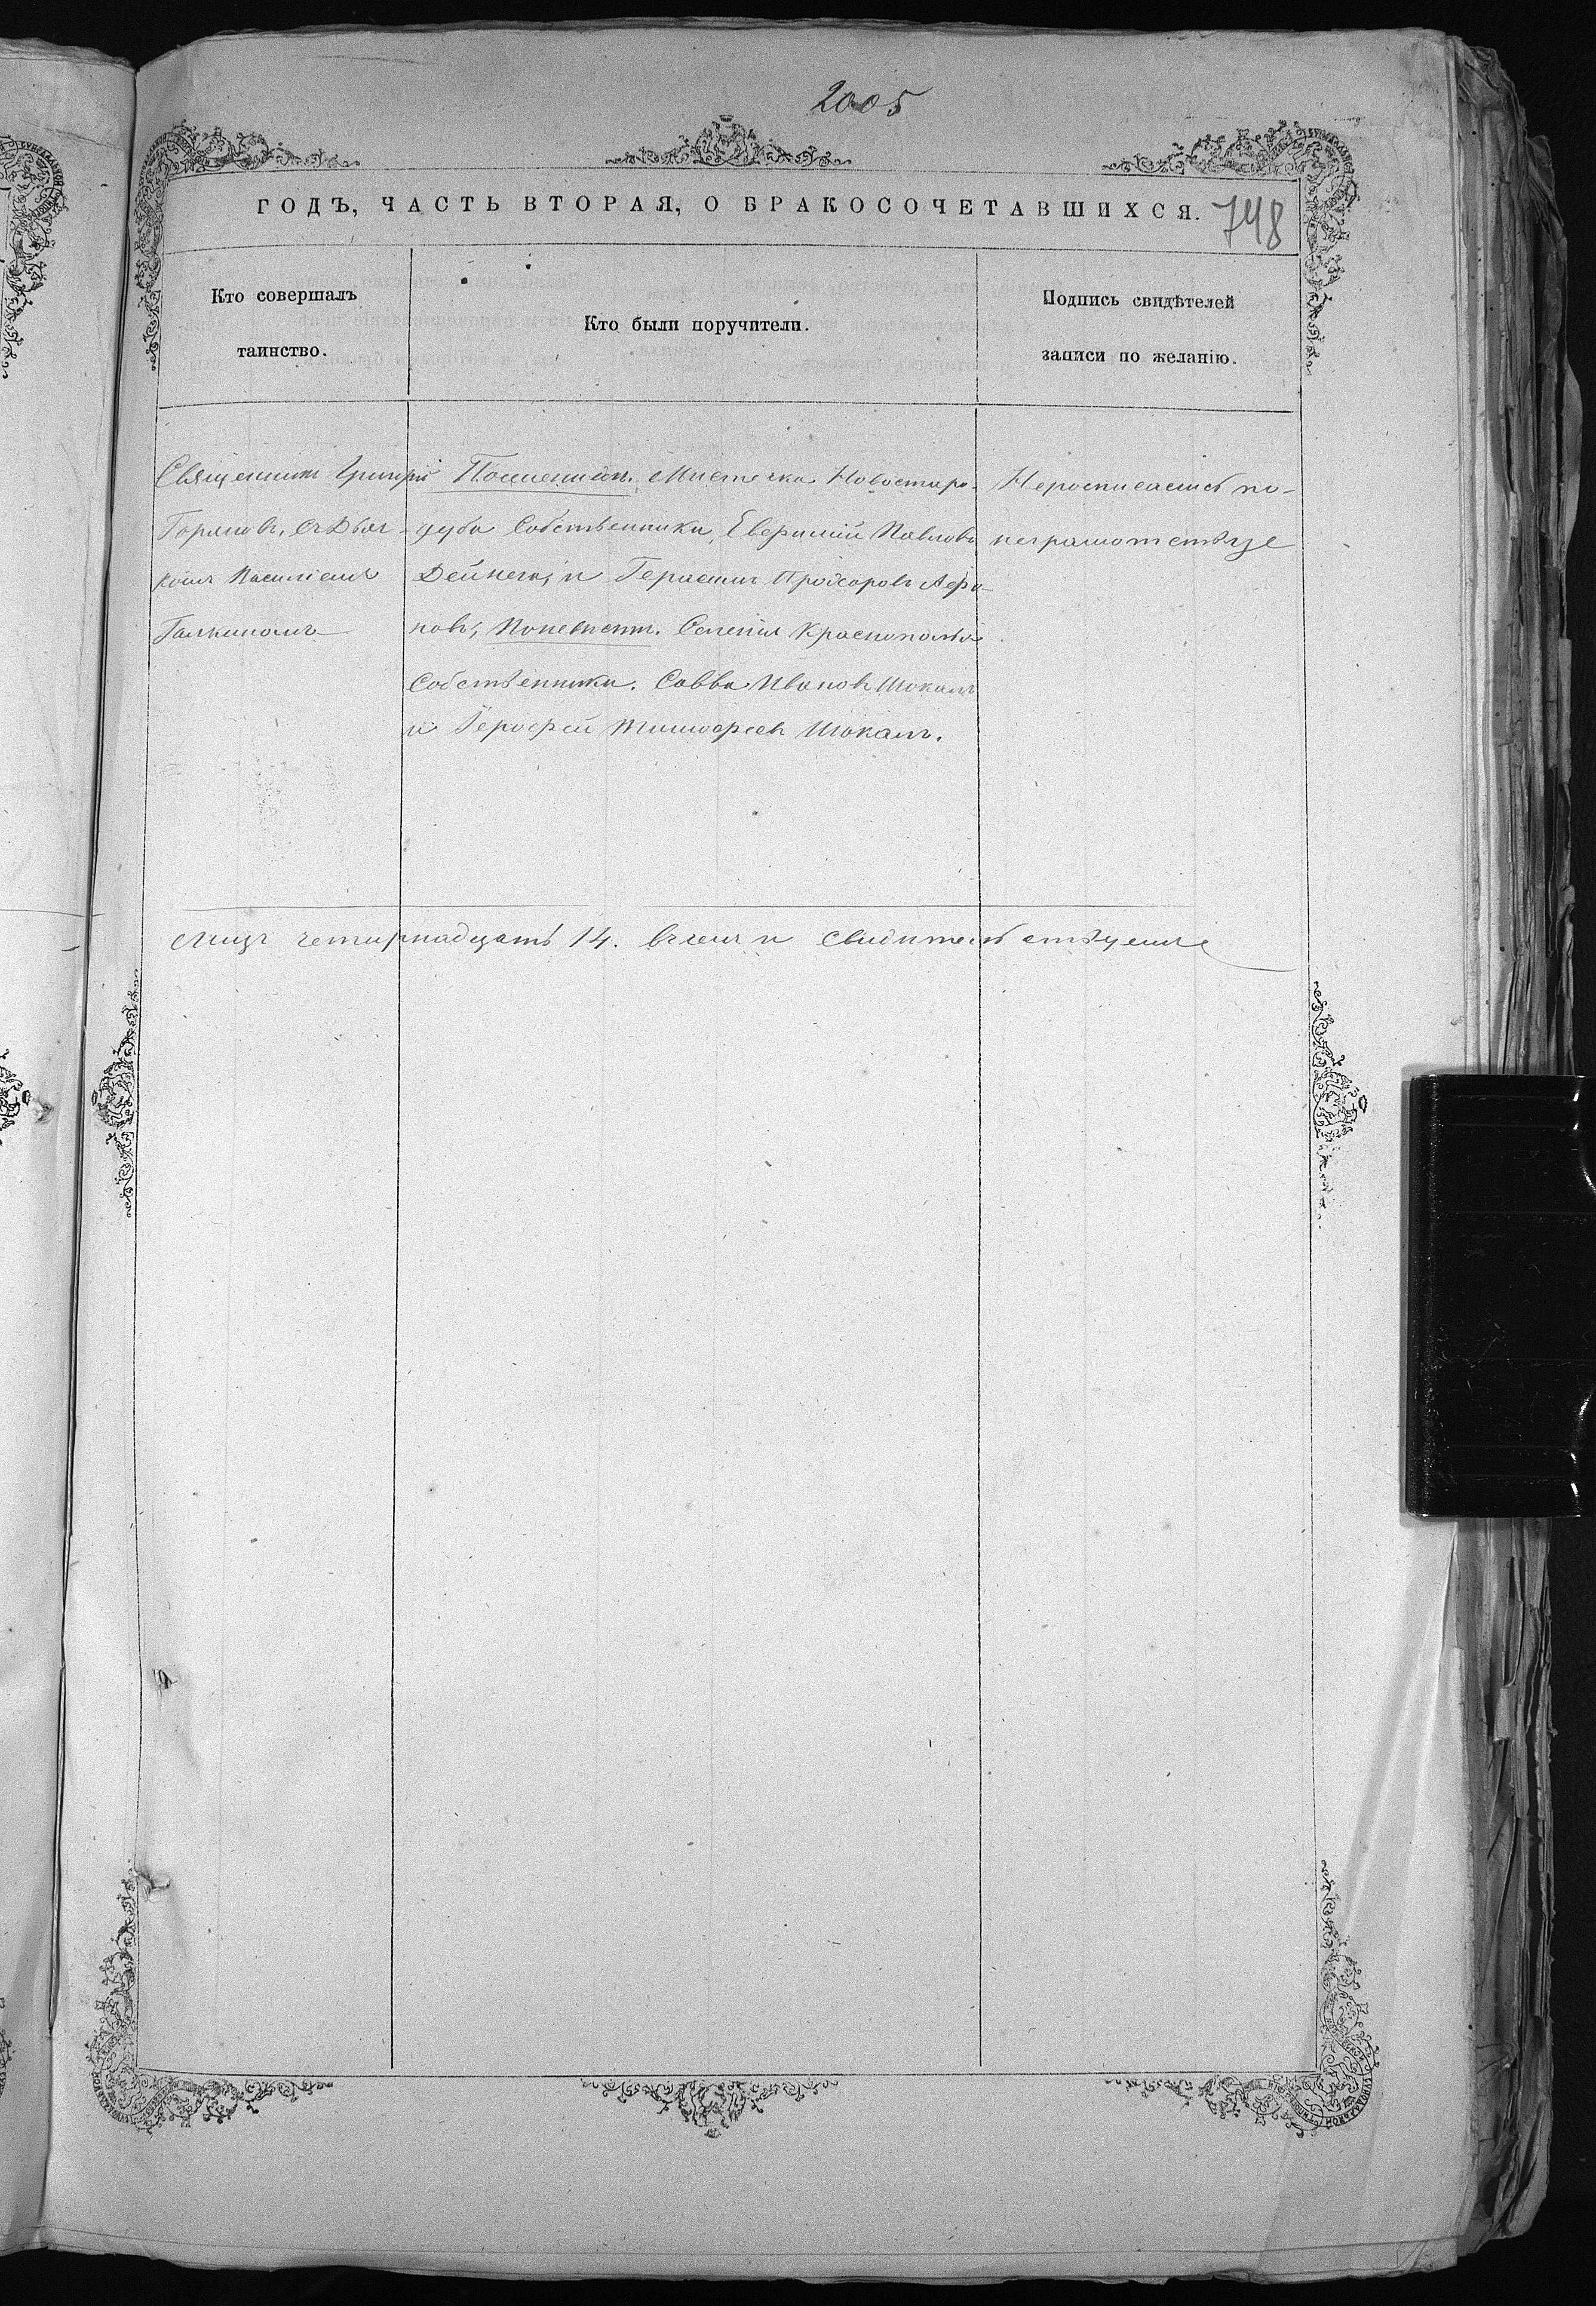 2005
ГОДЪ, ЧАСТЬ ВТОРАЯ, О БРАКОСОЧЕТАВШИХСЯ.
748
Кто совершалъ
таинство.
Кто были поручители.
Подпись свидѣтелей
записи по желанію.
Священникъ Григорій
Горяновъ, съ Дьяч-
комъ Василіемъ
Галкиномъ
По женихѣ. Мистечка Новостаро-
дуба Собственники, Евфимій Павловъ
Дейнега, и Герасимъ Прохоровъ Афо-
новъ, По невѣстѣ. Селенія Краснополья
Собственники. Савва Ивановъ Шокалъ
и Герофей Тимофеевъ Шокалъ.
Неросписались по-
неграмотству
лицъ четырнадцать 14. въ чемъ и свидѣтельствуемъ